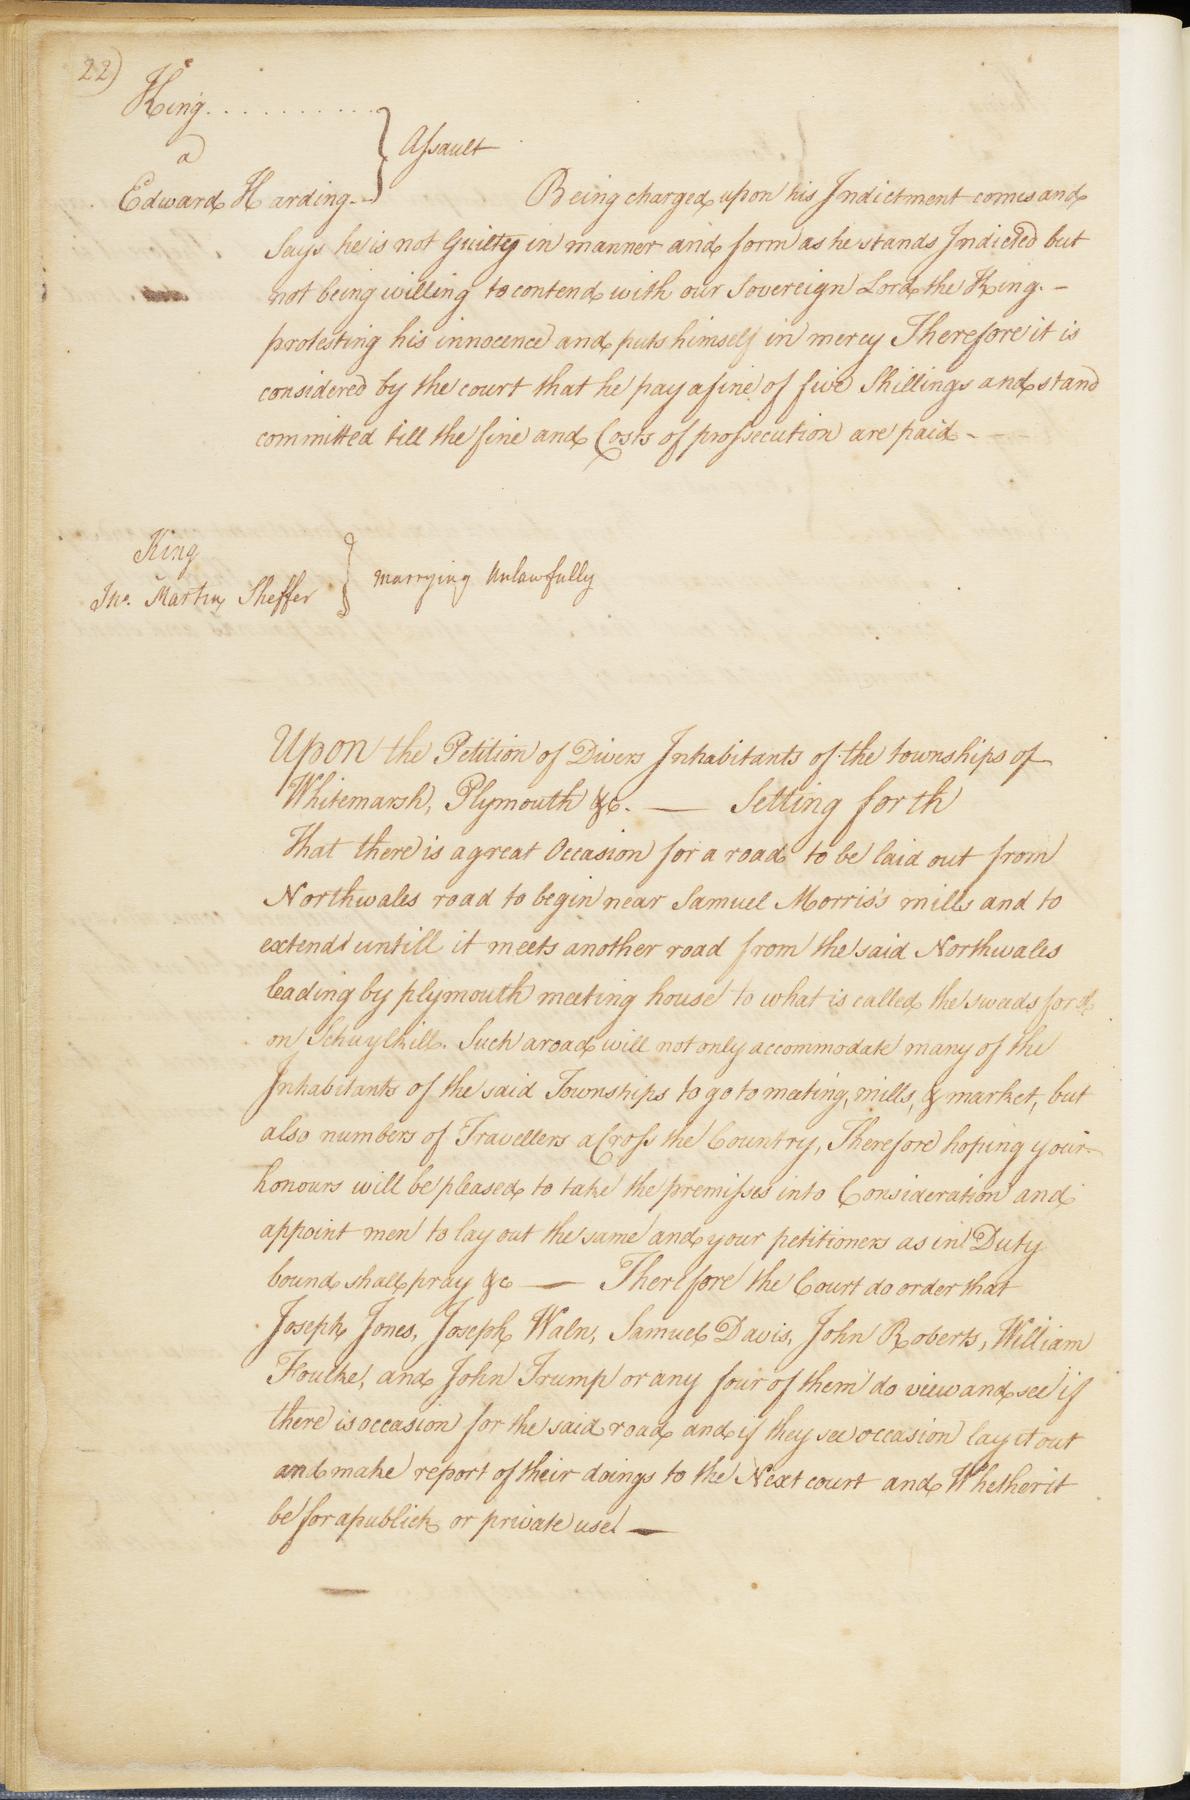 22)
King . . . . . . . . . . .
a } Assault
Edward Harding - - Being charged upon his Indictment comes and
Says he is not Guilty in manner and form as he stands Indicted but
not being willing to contend with our Sovereign Lord the King. -
protesting his innocence and puts himself in mercy Therefore it is
considered by the court that he pay a fine of five Shillings and stand
committed till the fine and Costs of prossecution are paid -
King
Jno. Martin Sheffer } marrying Unlawfully
Upon the Petition of Divers Inhabitants of the townships of
Whitemarsh, Plymouth &c. — Setting forth
That there is a great Occasion for a road to be laid out from
Northwales road to begin near Samuel Morris's mills and to
extend untill it meets another road from the said Northwales
leading by plymouth meeting house to what is called the sweeds ford
on Schuylkill. Such a road will not only accommodate many of the
Inhabitants of the said Townships to go to meeting, mills, & market, but
also numbers of Travellers aCross the Country, Therefore hoping your
honours will be pleased to take the premisses into Consideration and
appoint men to lay out the same and your petitioners as in Duty
bound shall pray &c — Therefore the Court do order that
Joseph Jones, Joseph Waln, Samuel Davis, John Roberts, William
Foulke, and John Trump or any four of them do view and see if
there is occasion for the said road and if they see occasion lay it out
and make report of their doings to the Next court and Whether it
be for a publick or private use —